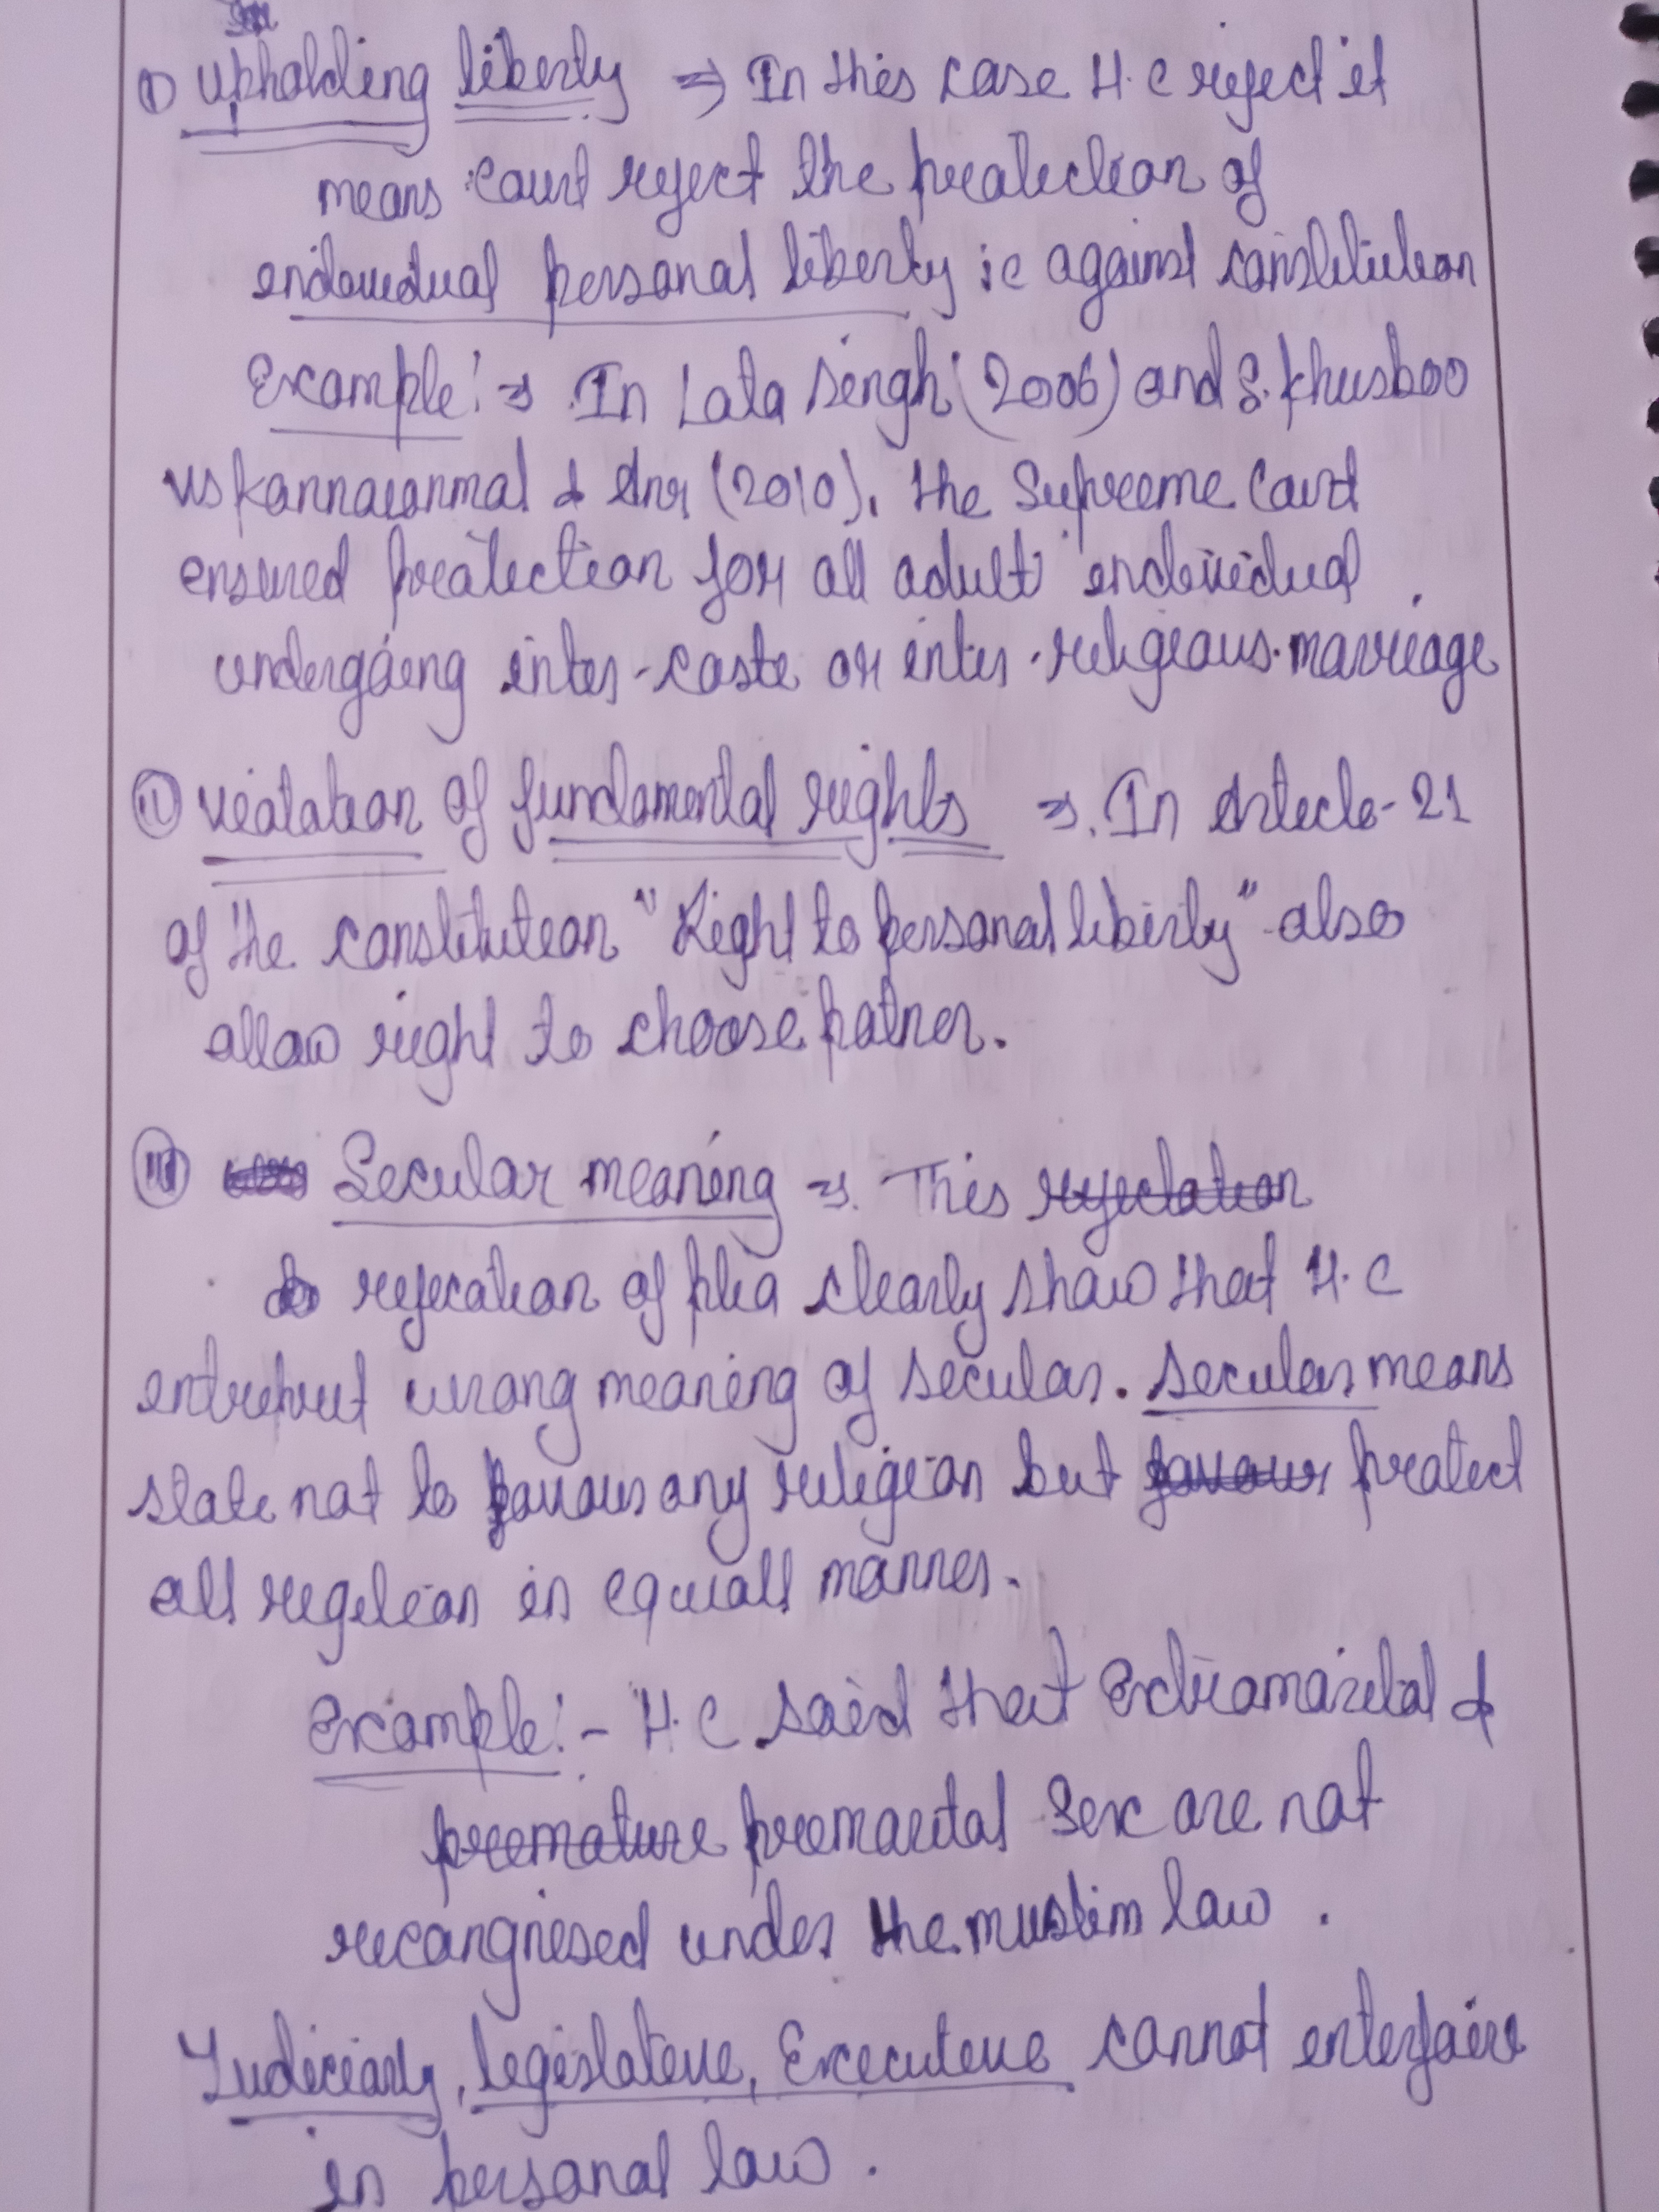 ① Upholding liberty ⇒ In this case H.C reject it
means court reject the protection of
individual personal liberty ie against constitution
Example:⇒ In Lata Singh (2006) and S. Khusboo
vs Kannaianmal & Anr (2010). the Supreme Court
ensured protection for all adult individual
undergoing inter-caste or inter-religious marriage
② violation of fundamental rights ⇒ In Article-21
of the constitution "Right to personal liberty" also
allow right to choose patner.
③ Secular meaning ⇒ This rejectation
rejecation of plea clearly show that H.C
intreput wrong meaning of secular. Secular means
state not to favour any religion but favour protect
all regilion in equall manner.
Example:- H.C said that Extramarital &
premature premarital Sex are not
recongnised under the muslim law.
Judiciary, legislative, Executive cannot interfaire
in personal law.